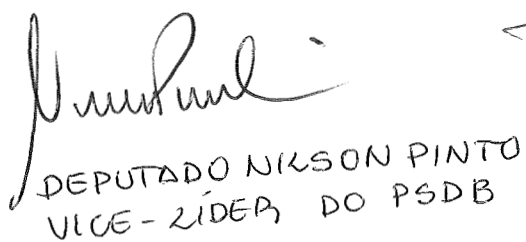 DEPUTADO NILSON PINTO
VICE-LÍDER DO PSDB